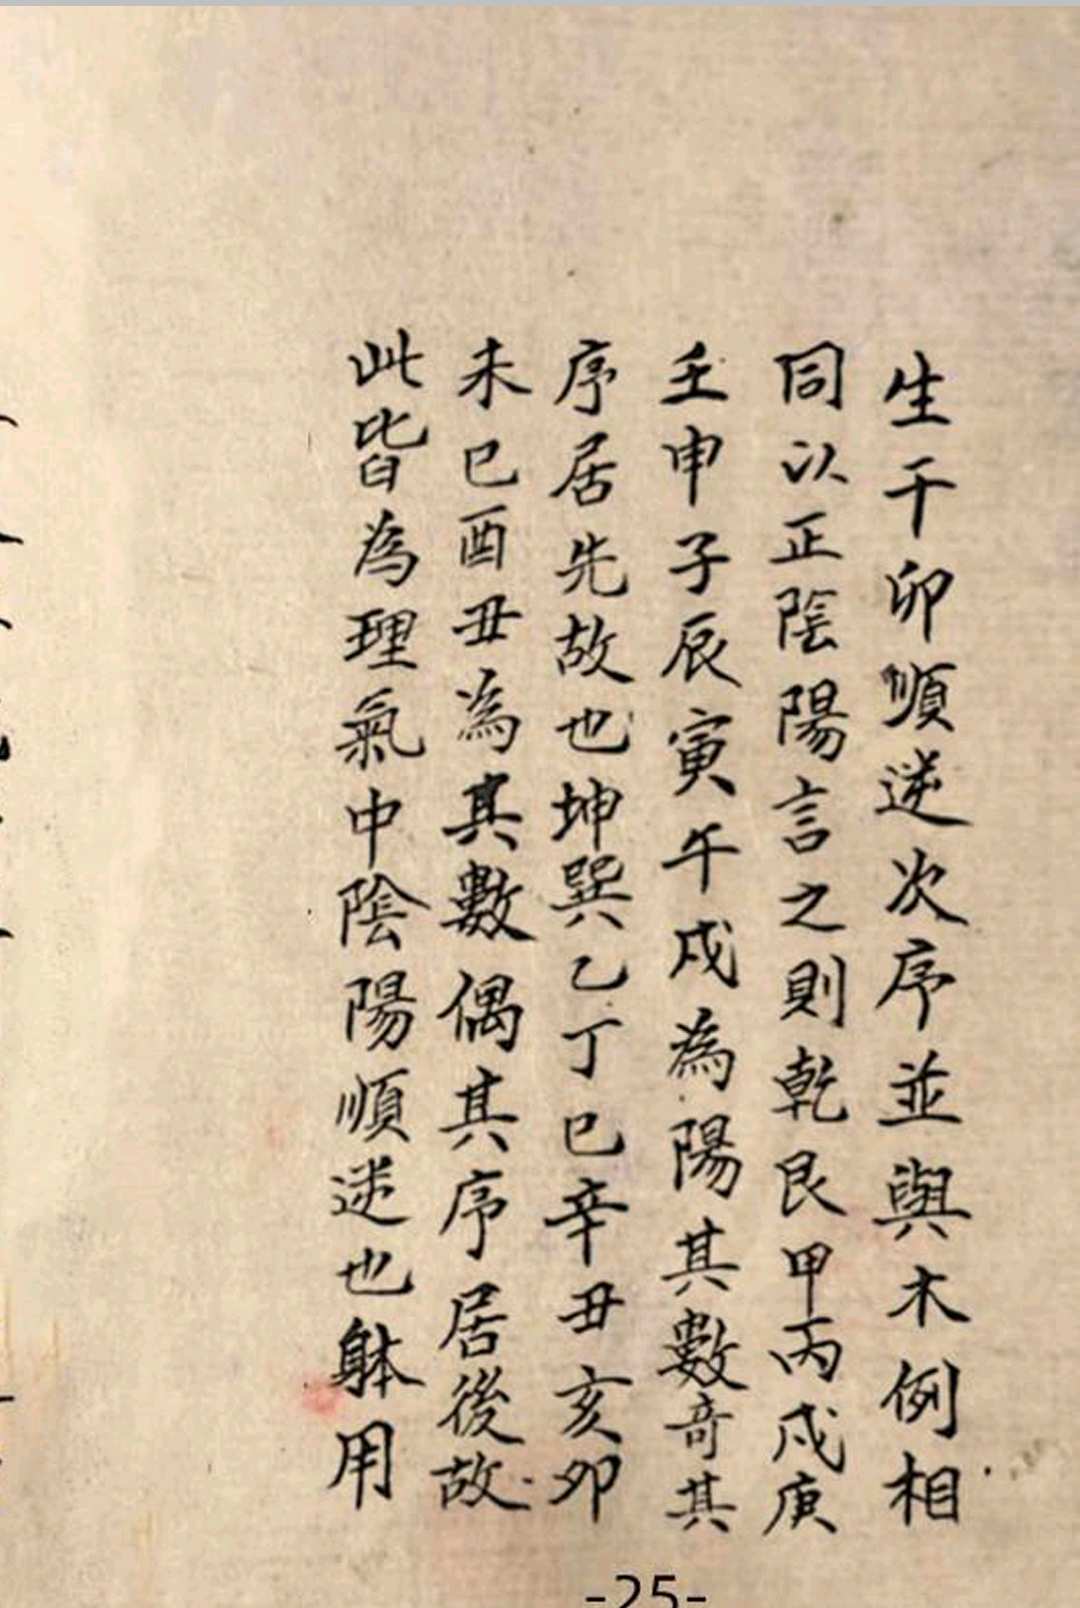 生于卯順逆次序並與木例相
同以正陰陽言之則乾艮甲丙戌庚
壬申子辰寅午戌為陽其數奇其
序居先故也坤巽乙丁巳辛丑亥卯
未巳酉丑為其數偶其序居後故
此皆為理氣中陰陽順逆也躰用
-25-